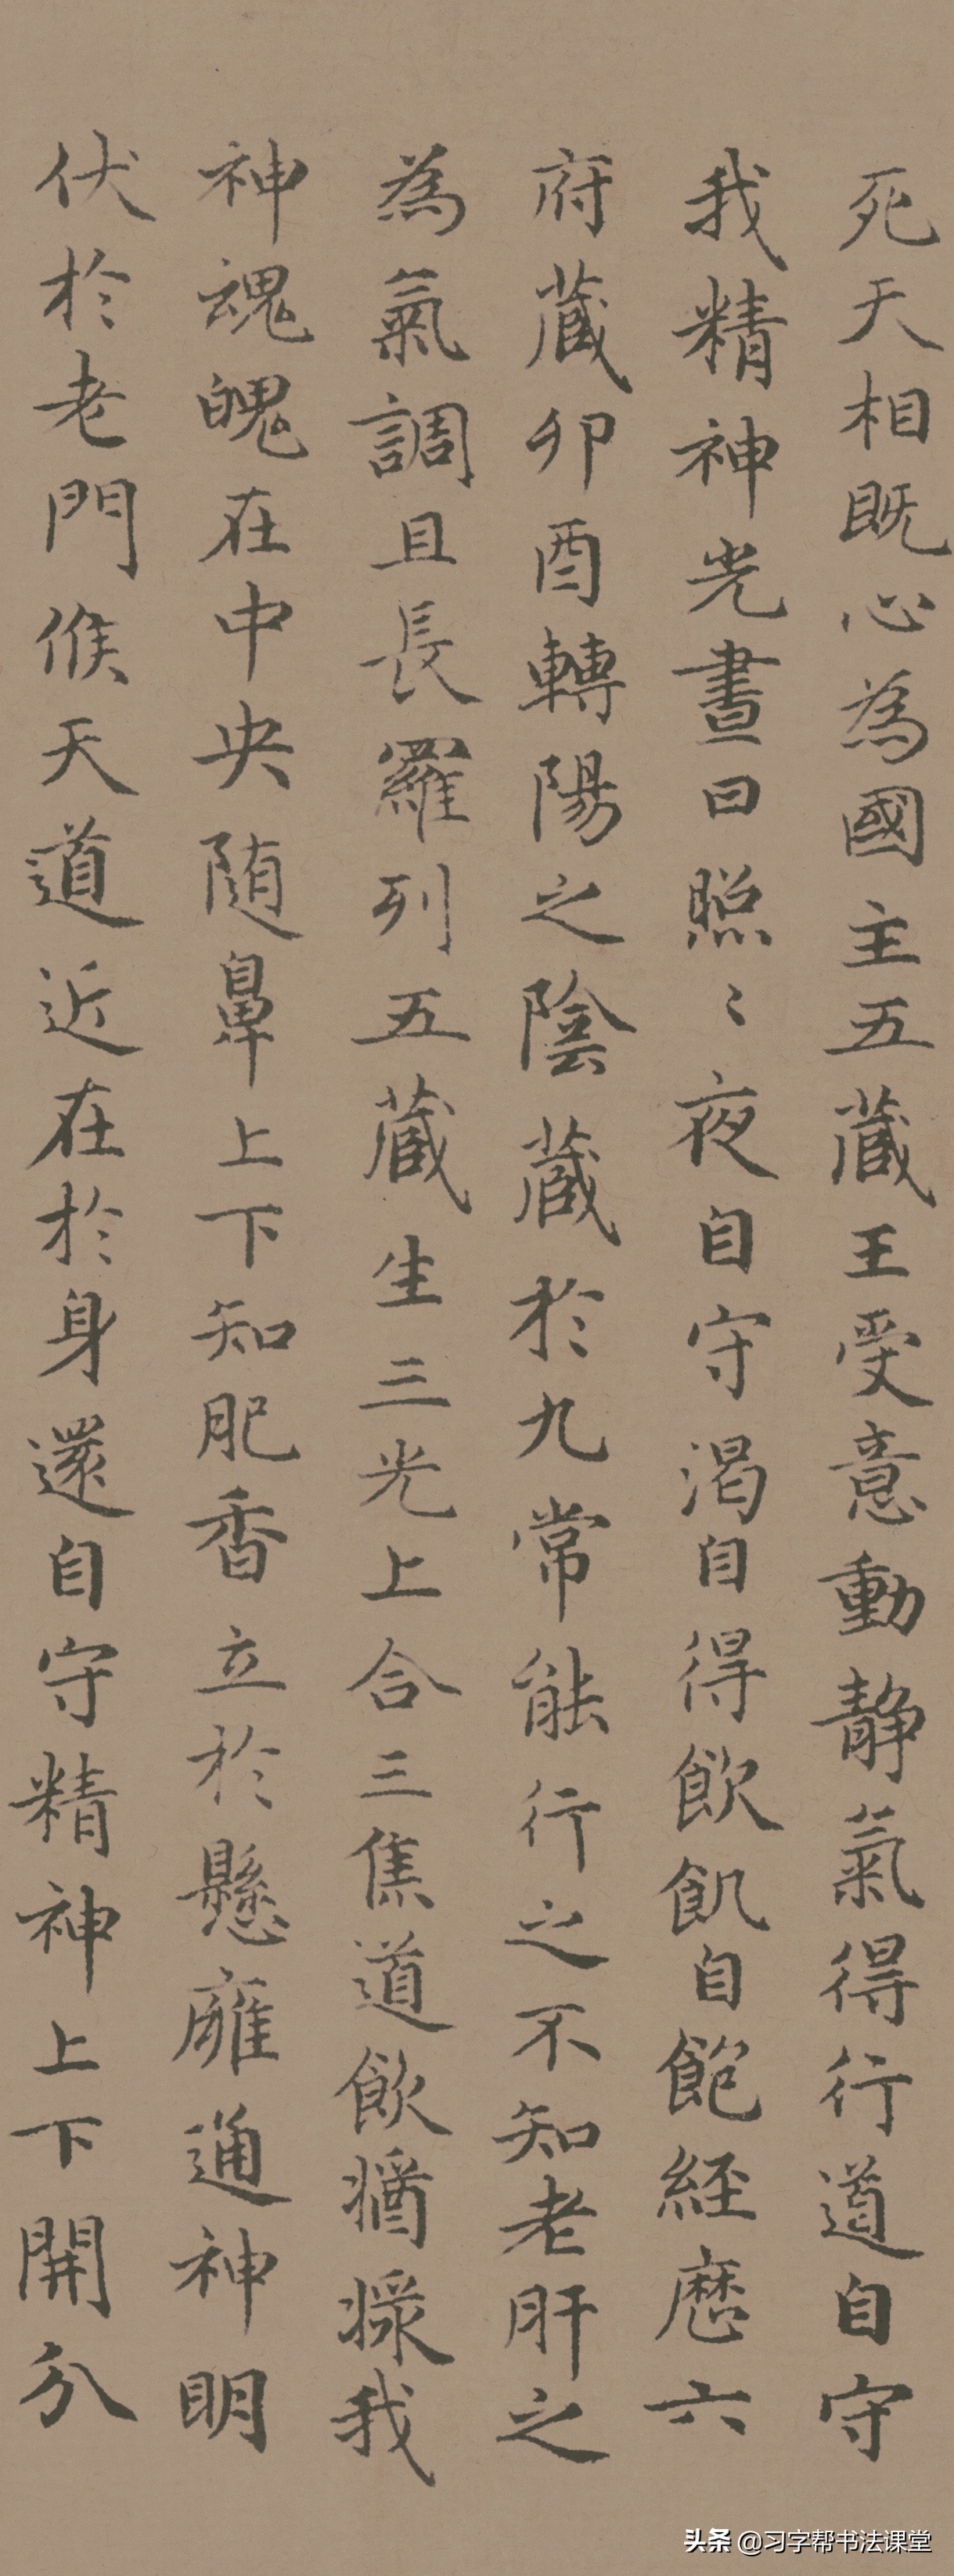 死天相既心為國主五藏王受意動靜氣得行道自守
我精神光晝日照〻夜自守渴自得飲飢自飽經歷六
府藏卯酉轉陽之陰藏於九常能行之不知老肝之
為氣調且長羅列五藏生三光上合三焦道飲
我
神魂魄在中央随鼻上下知肥香立於懸雍通神明
伏於老門候天道近在於身還自守精神上下開分
头条 @习字帮书法课堂